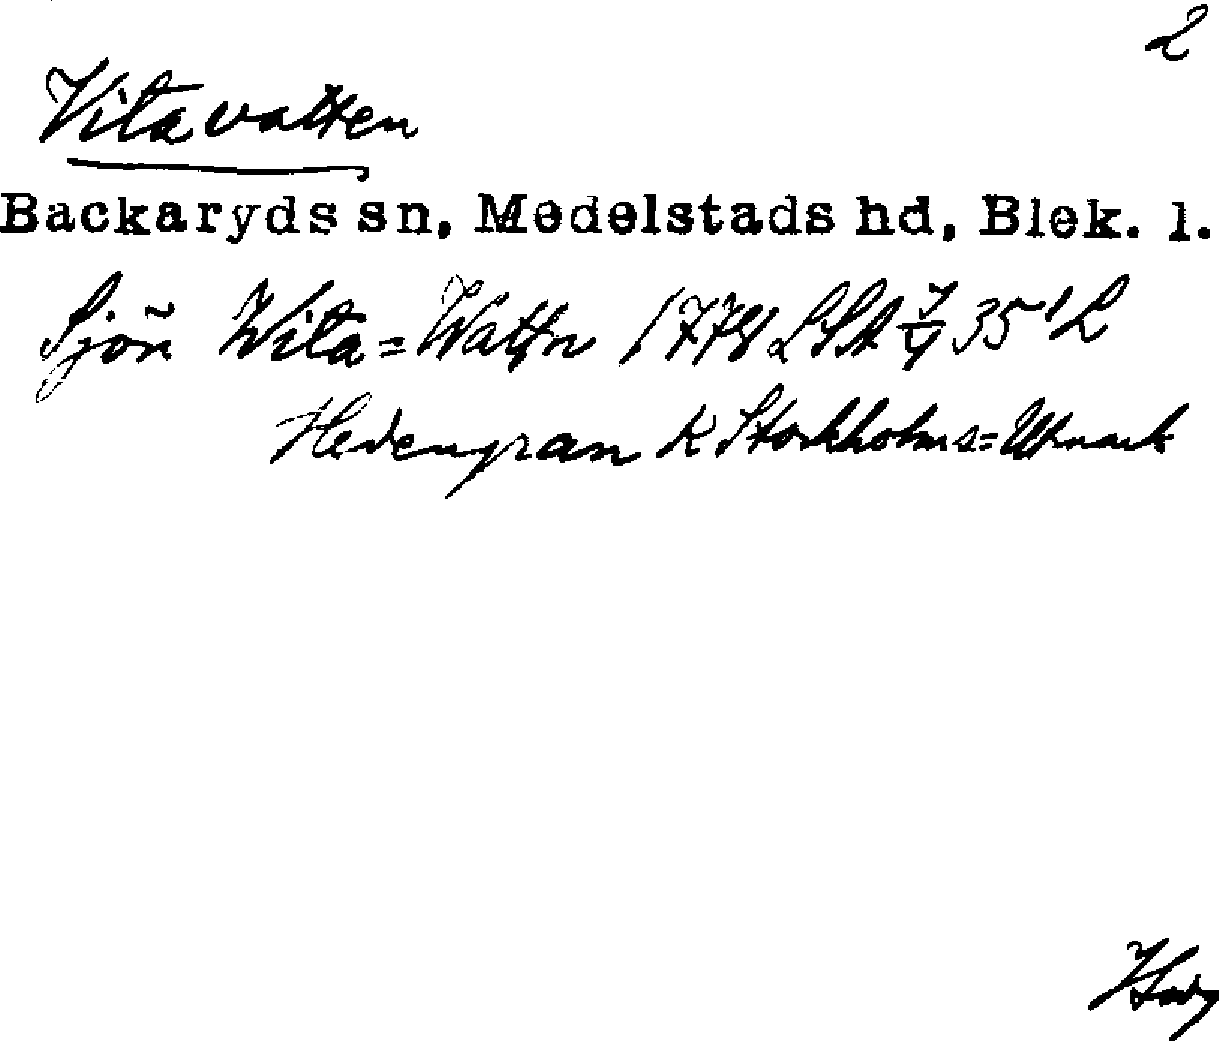 2
Vitavatten
Backaryds sn, Medelstads hd, Blek. l.
Sjön Wita=Wattn 1778 LSA 35 L
Hedengran K Stockholms=Utmark